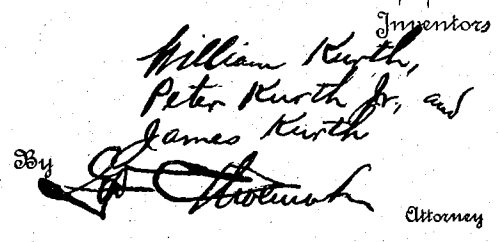 Inventors
William Kurth,
Peter Kurth Jr., and
James Kurth
By
Attorney